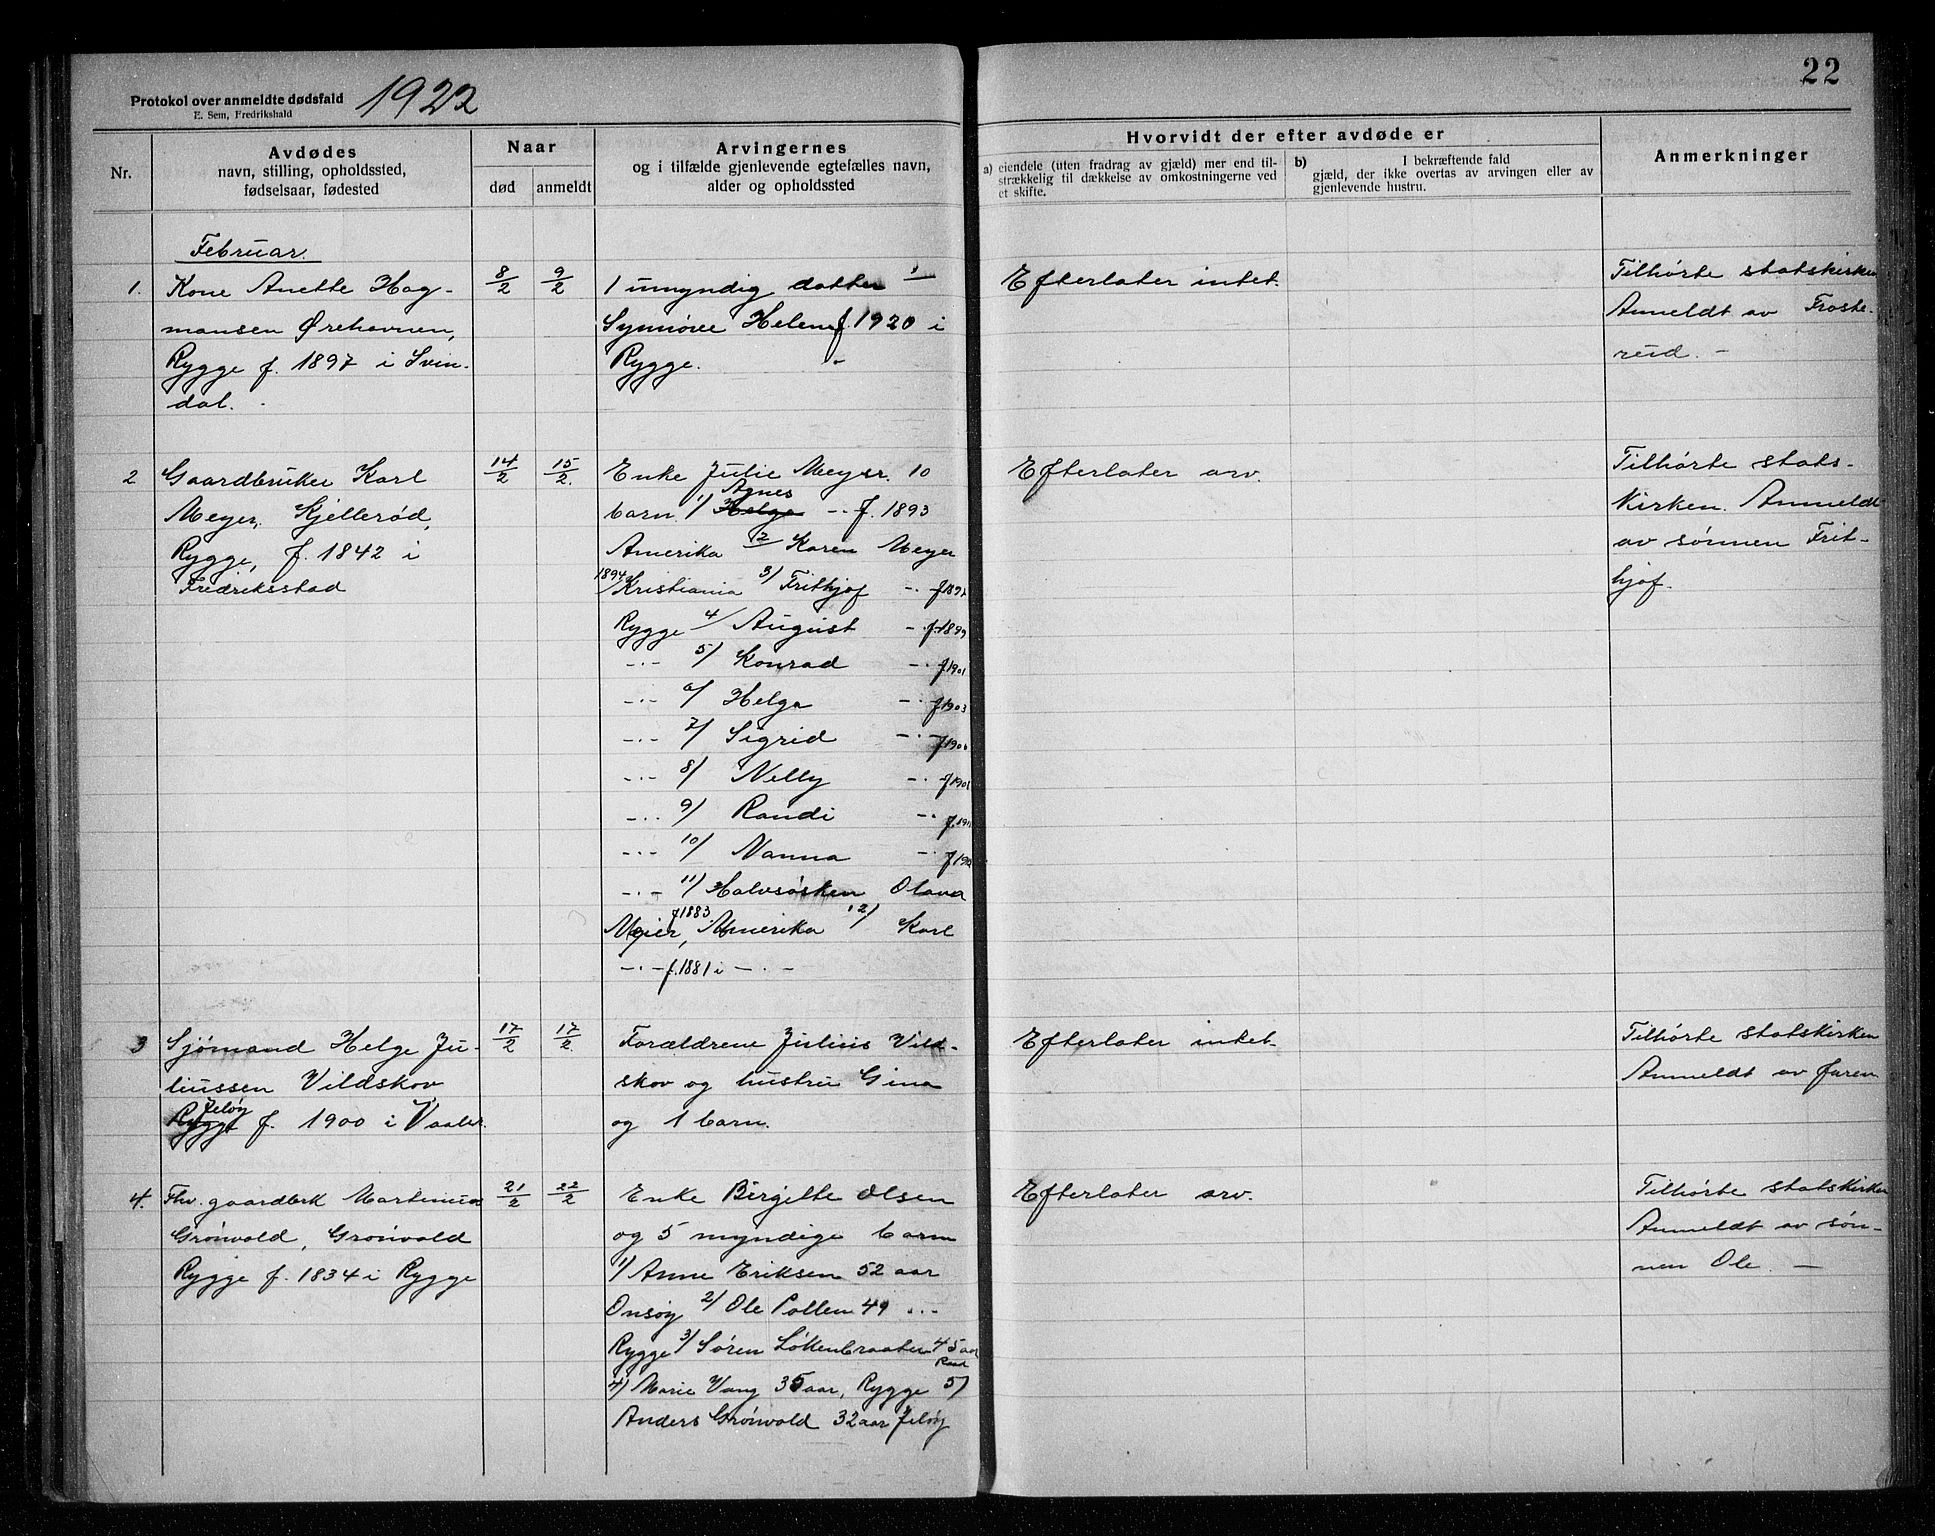 22
Protokol over anmeldte dødsfald 1922
E. Sem, Fredrikshald
Nr.
Avdødes
navn, stilling, opholdssted,
fødselsaar, fødested
Naar
død
anmeldt
Arvingernes
og i tilfælde gjenlevende egtefælles navn,
alder og opholdssted
Hvorvidt der efter avdøde er
a) eiendele (uten fradrag av gjæld) mer end til-
strækkelig til dækkelse av omkostningerne ved
et skifte.
b) I bekræftende fald
gjæld, der ikke overtas av arvingen eller av
gjenlevende hustru.
Anmerkninger
Februar.
1.
Kone Anette Hag-
mansen Ørehavnen,
Rygge f. 1897 i Svin-
dal. -
8/2
9/2
1 umyndig datter 1/
Synnøve Helene f. 1920 i
Rygge. -
Efterlater intet.
Tilhørte statskirken
Anmeldt av Froste-
rud. -
2
Gaardbruker Karl
Meyer, Kjellerød,
Rygge, f. 1842 i
Fredriksstad
14/2
15/2.
Enke Julie Meyer. 10
Agnes
barn. 1/ Helga -.- f. 1893
Amerika 2/ Karen Meyer
1894/ Kristiania 3/ Frithjof -.- f 1897
Rygge 4/ August -.- f. 1899
-.- 5/ Konrad -.- f. 1901
-.- 6/ Helga -.- f 1903
-.- 7/ Sigrid -.- f 1906
-.- 8/ Nelly -.-
-.- 9/ Randi -.-
-.- 10/ Nanna -.-
-.- 11/ Halvsøsken Olava
f 1883.
Meier, Amerika 12/ Karl
-.- f. 1881 i -.-
Efterlater arv.
Tilhørte stats-
kirken. Anmeldt
av sønnen Frit-
hjof.
3
Sjømand Helge Ju-
liussen Vildskov
Jeløy
Rygge f. 1900 i Vaaler.
17/2
17/2.
Forældrene Julius Vild-
skov og hustru Gina
og 1 barn.
Efterlater intet.
Tilhørte statskirken
Anmeldt av faren
4.
Fhv. gaardbrk Martinius
Grønvold, Grønvold
Rygge f. 1834 i Rygge
21/2
22/2
Enke Birgitte Olsen
og 5 myndige barn
1/ Anne Eriksen 52 aar
Onsøy 2/ Ole Pollen 49 -.-
Rygge 3/ Søren Løkkenbraaten 45 aar
Raad
4) Marie Vang 35 aar, Rygge 5)
Anders Grønvold 32 aar Jeløy
Efterlater arv.
Tilhørte statskirken
Anmeldt av søn-
nen Ole. -